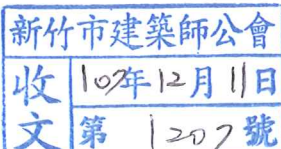 新竹市建築師公會
收文
107年12月11日
第1207號